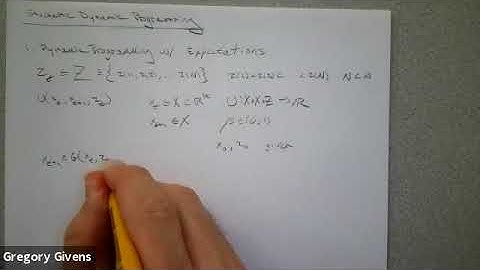 Stochastic Dynamic Programming
1. Dynamic Programming w/ Expectations
z_t ∈ Z ≡ {z(1), z(2), ... z(N)} z(1) < z(2) < ... < z(N) N < ∞
U(x_t, x_{t+1}, z_t) x_t ∈ X ⊂ R^K U: X×X×Z → R
x_{t+1} ∈ X β ∈ (0, 1)
x_0, z_0 given
x_{t+1} ∈ G(x_t, z
Gregory Givens